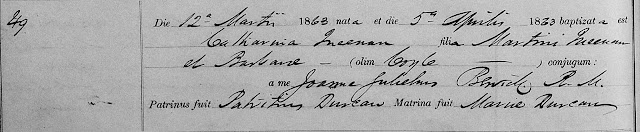 49 Die 12ª Martii 1863 nata et die 5ª Aprilis 1863 baptizata est
Catharina Queenan filia Martini Queenan
et Barbarae — (olim Coyle) conjugum:
a me Joanne Gulielmo R. M.
Patrinus fuit Patritius Duncan Matrina fuit Maria Duncan